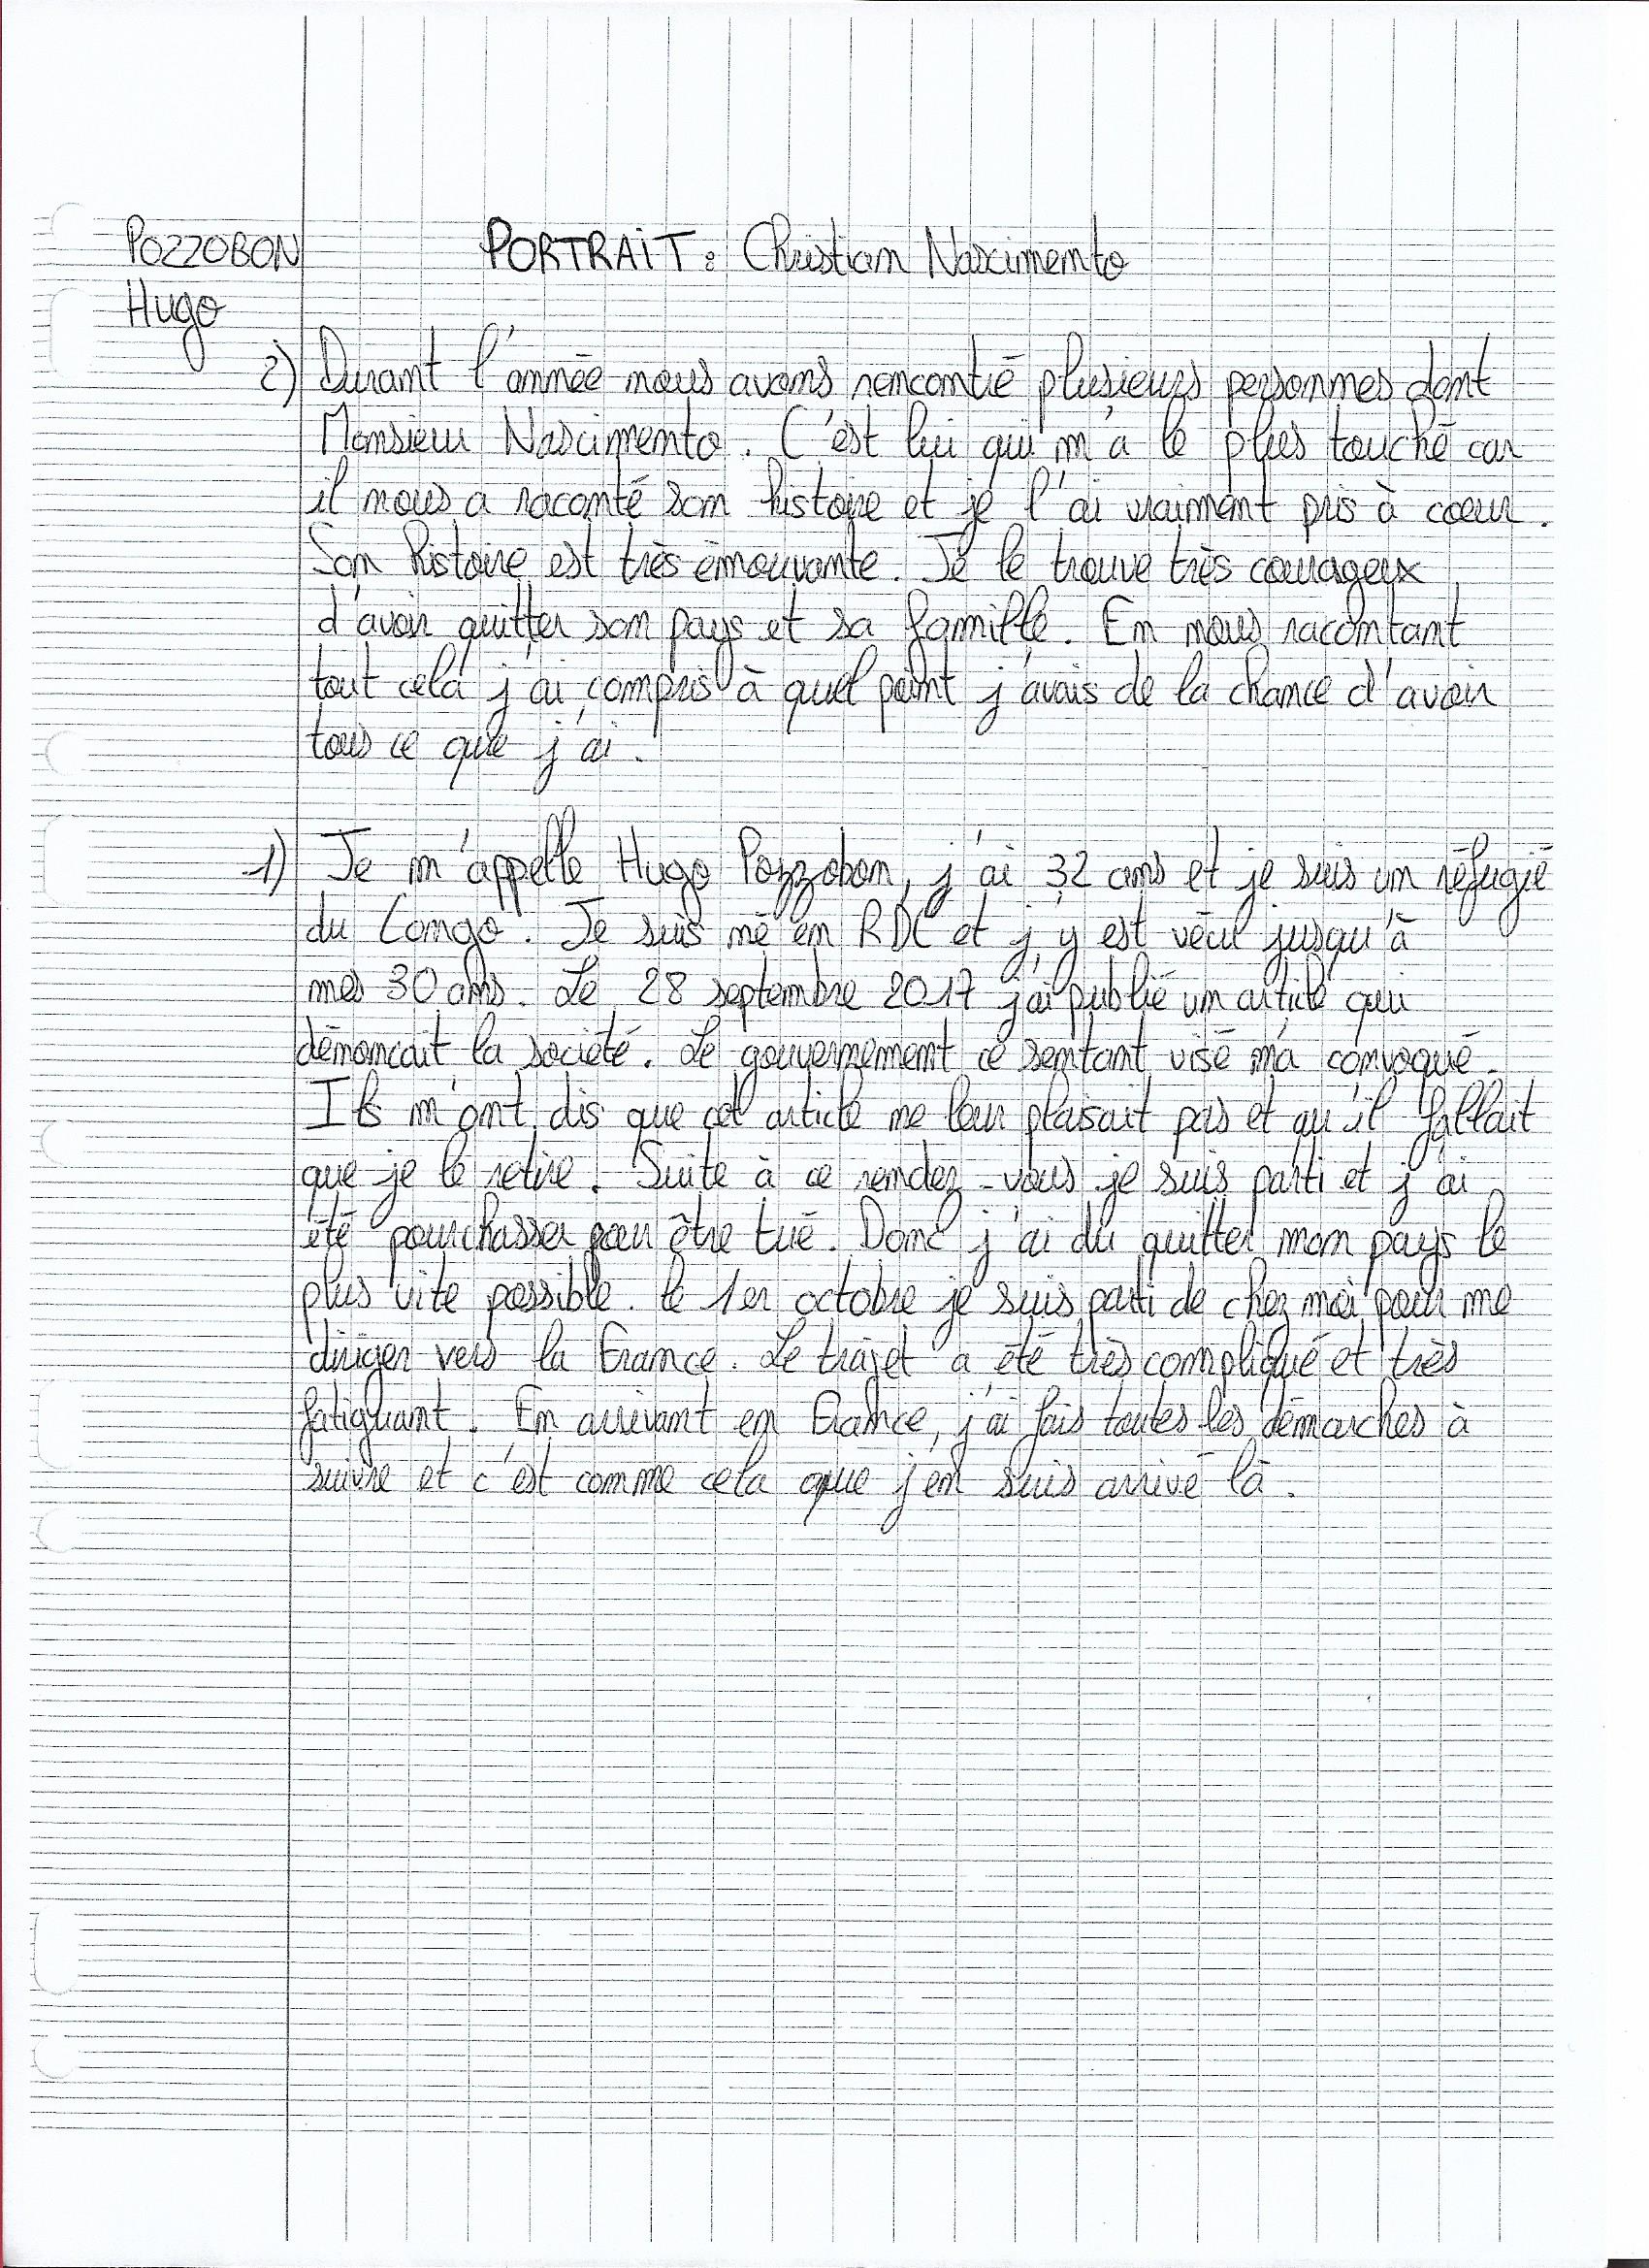 POZZOBON
Hugo
PORTRAIT : Christian Nascimento
2) Durant l'année nous avons rencontré plusieurs personnes dont
Monsieur Nascimento. C'est lui qui m'a le plus touché car
il nous a raconté son histoire et je l'ai vraiment pris à coeur.
Son histoire est très émouvante. Je le trouve très courageux
d'avoir quitter son pays et sa famille. En nous racontant
tout cela j'ai compris à quel point j'avais de la chance d'avoir
tous ce que j'ai.
1) Je m'appelle Hugo Pozzobon, j'ai 32 ans et je suis un réfugié
du Congo. Je suis né en RDC et j'y est vécu jusqu'à
mes 30 ans. Le 28 septembre 2017 j'ai publié un article qui
dénoncait la société. Le gouvernement ce sentant visé m'a convoqué.
Ils m'ont dis que cet article ne leur plaisait pas et qu'il fallait
que je le retire. Suite à ce rendez-vous je suis parti et j'ai
été pourchasser pour être tué. Donc j'ai du quitter mon pays le
plus vite possible. le 1er octobre je suis parti de chez moi pour me
diriger vers la France. Le trajet a été très compliqué et très
fatiguant. En arrivant en France, j'ai fais toutes les démarches à
suivre et c'est comme cela que j'en suis arrivé là.